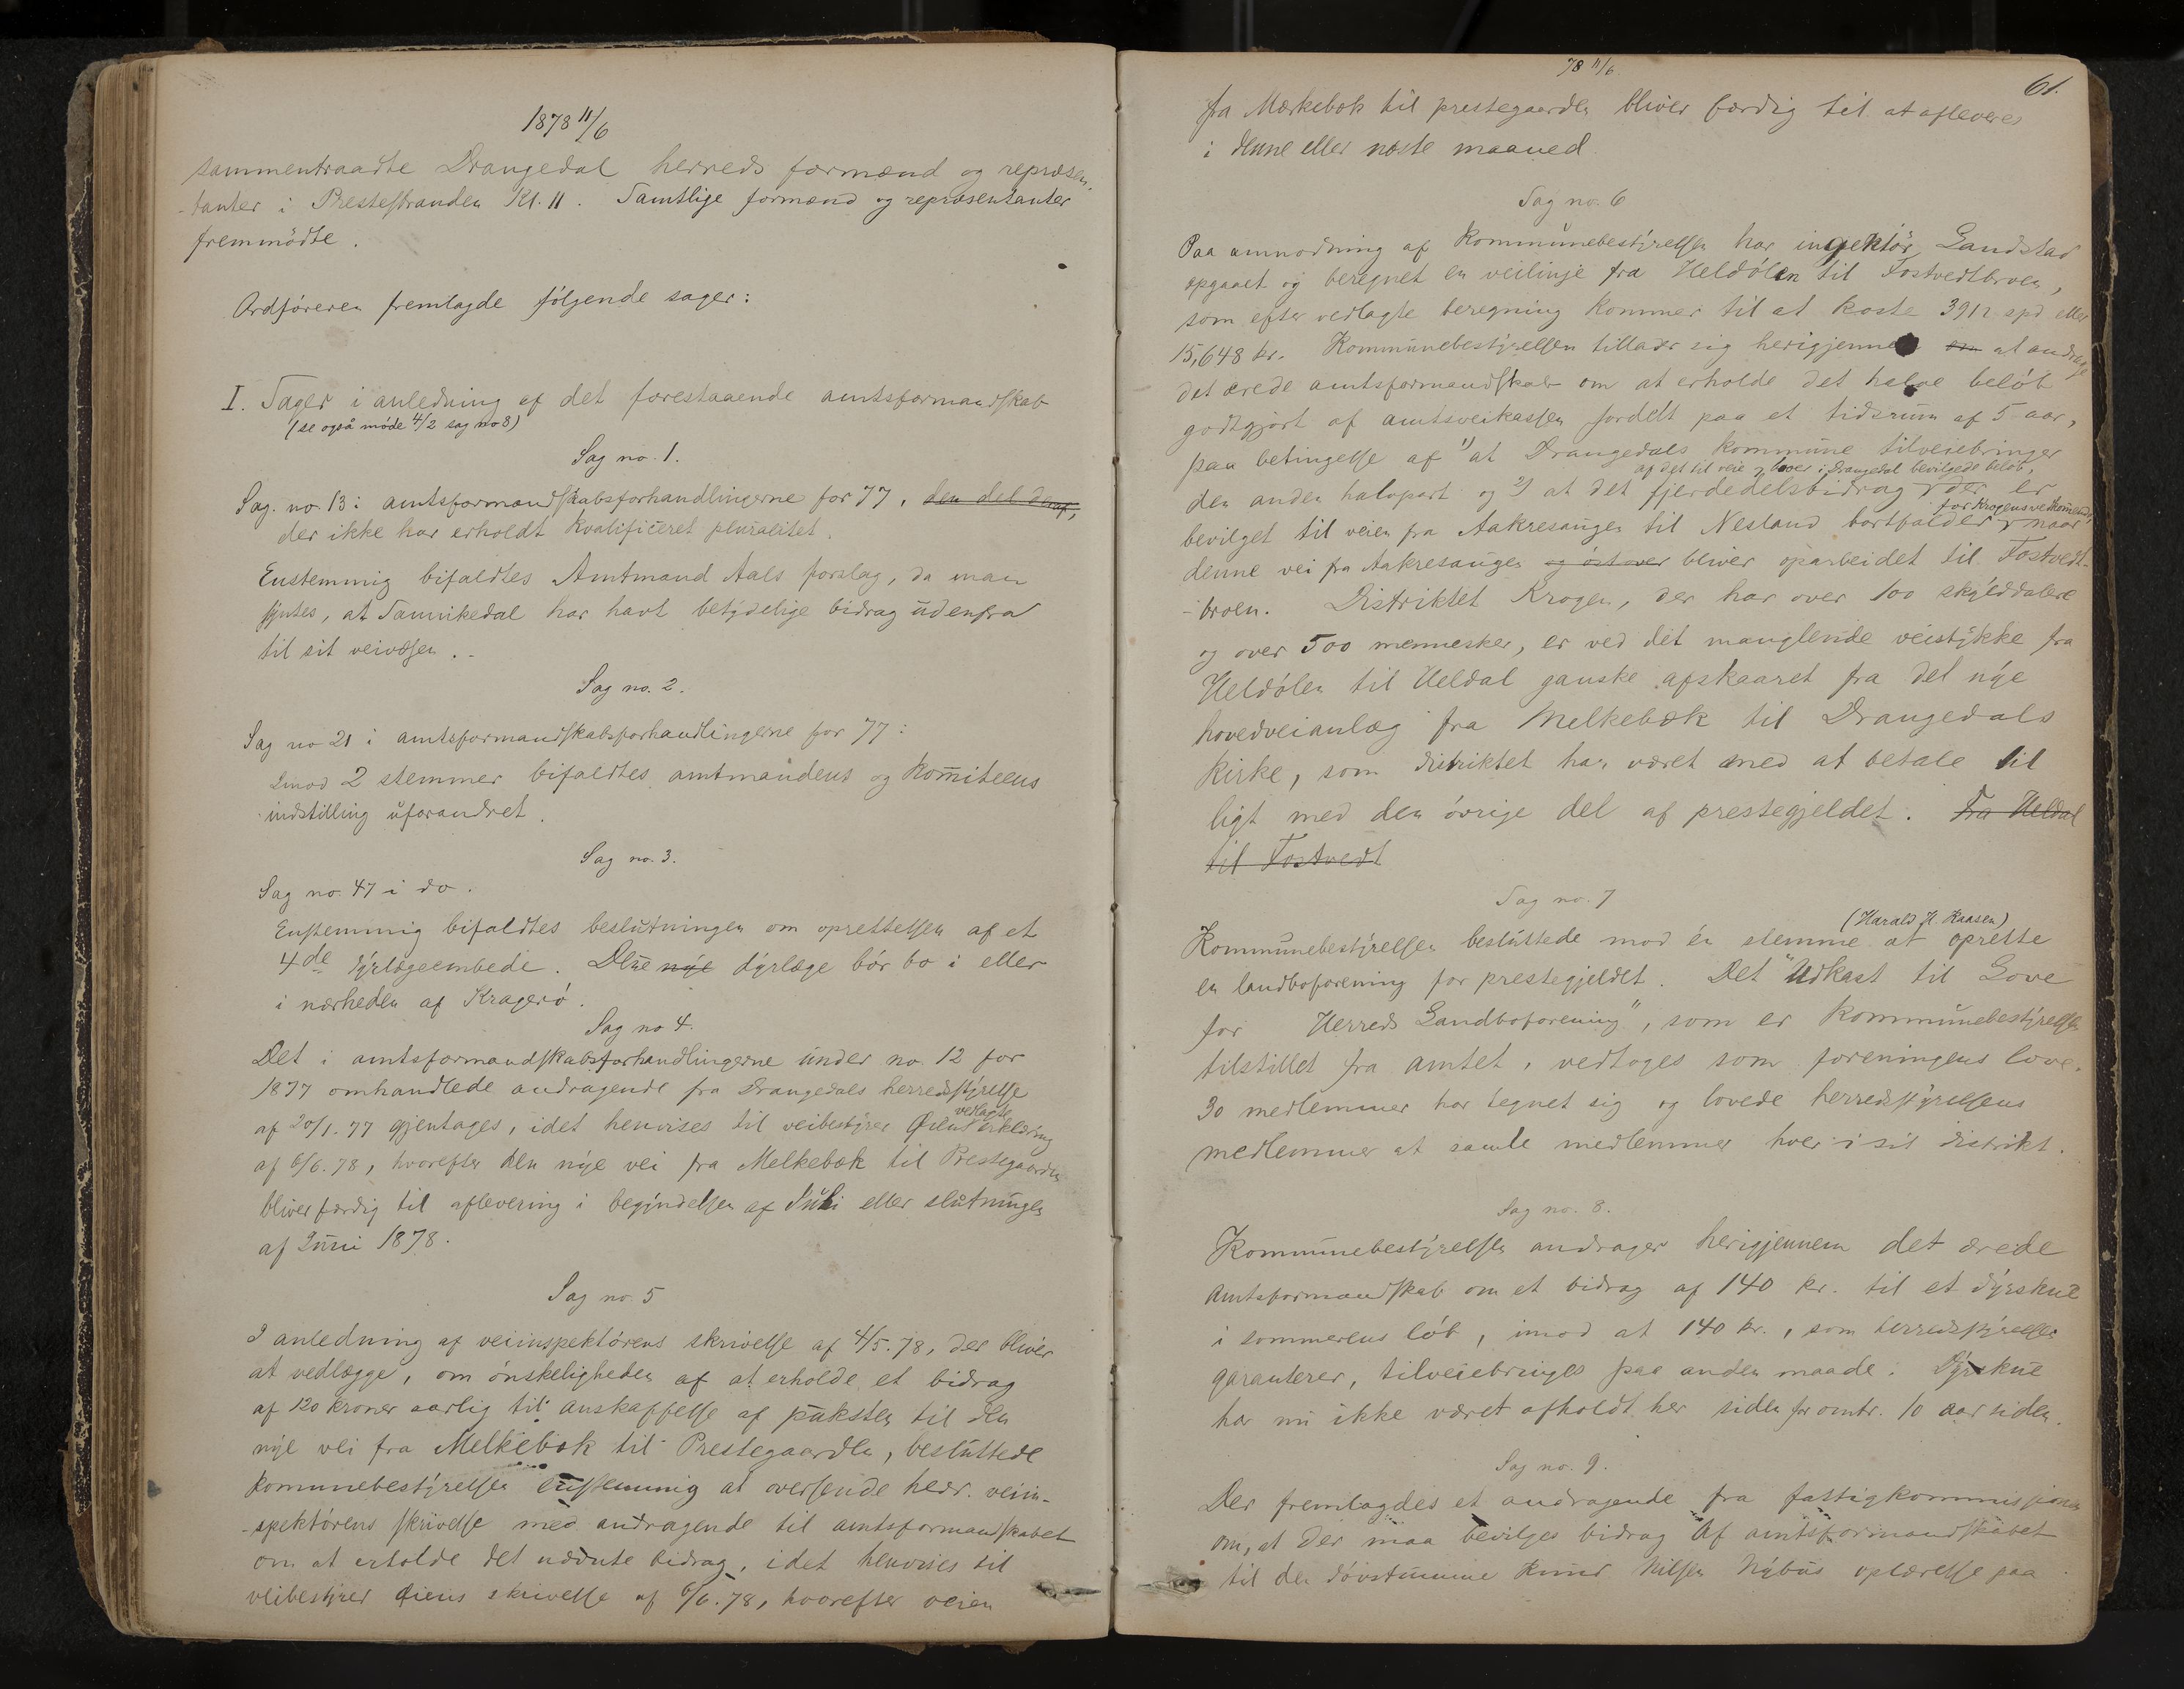 1878 11/6
sammentraadte Drangedal herreds formænd og repræsen-
-tanter i Prestestranden Kl. 11. Samtlige formænd og repræsentanter
fremmödte.
Ordföreren fremlagde fölgende sager:
I. Sager i anledning af det forestaaende amtsformandskab
(se også möde 4/2 sag no 8)
Sag no. 1.
Sag. no. 13 i amtsformandskabsforhandlingerne for 77, den del deraf,
der ikke har erholdt kvalificeret pluralitet.
Enstemmig bifaldtes Amtmand Aals forslag, da man
syntes, at Sannikedal har havt betydelige bidrag udenfra
til sit veivæsen.-
Sag no. 2.
Sag no 21 i amtsformandskabsforhandlingerne for 77:
Imod 2 stemmer bifaldtes amtmandens og komiteens
indstilling uforandret.
Sag no. 3.
Sag no. 47 i do.
Enstemmig bifaldtes beslutningen om oprettelsen af et
4de dyrlægeembede. Dene nye dyrlæge bör bo i eller
i nærheden af Kragerö.
Sag no 4.
Det i amtsformandskabsforhandlingerne under no. 12 for
1877 omhandlede andragende fra Drangedals herredsstyrelse
vedlagte
af 20/1. 77 gjentages, idet henvises til veibestyrer Øiens erklæring
af 6/6. 78, hvorefter den nye vei fra Melkebæk til Prestegaarden
bliver færdig til aflevering i begyndelsen af Juli eller slutningen
af Juni 1878.
Sag no. 5
I anledning af veiinspektörens skrivelse af 4/5. 78, der bliver
at vedlægge, om önskeligheden af at erholde et bidrag
af 120 kroner aarlig til anskaffelse af puksten til den
nye vei fra Melkebæk til Prestegaarden, besluttede
kommunebestyrelsen enstemmig at oversende hedr. veiin-
-spektörens skrivelse med andragende til amtsformandskabet
om at erholde det nævnte bidrag, idet henvises til
veibestyrer Øiens skrivelse af 6/6. 78, hvorefter veien
78 11/6
61.
fra Mærkebæk til prestegaarden bliver færdig til at afleveres
i denne eller næste maaned
Sag no. 6
Paa anmodning af Kommunebestyrelsen har ingeniör Landstad
opgaaet og beregnet en veilinje fra Heldölen til Tostvedtbroen,
som efter vedlagte beregning kommer til at koste 3912 spd eller
15,648 kr. Kommunebestyrelsen tillader sig herigjennem om at andrage
det ærede amtsformandskab om at erholde det halve belöb
godtgjort af amtsveikassen fordelt paa et tidsrum af 5 aar,
paa betingelse af 1) at Drangedals kommune tilveiebringer
af det til veie og broer i Drangedal bevilgede belöb,
den anden halvpart og 2) at det fjerdedelsbidrag der er
for Krogens vedkommende,
bevilget til veien fra Aakresaugen til Nesland bortfalder naar
denne vei fra Aakresaugen og östover bliver oparbeidet til Tostvedt-
-broen. Distriktet Krogen, der har over 100 skylddalere
og over 500 mennesker, er ved det manglende veistykke fra
Heldölen til Heldal ganske afskaaret fra det nye
hovedveianlæg fra Melkebæk til Drangedals
kirke, som distriktet har været med at betale til
ligt med den övrige del af prestegjeldet. Fra Heldal
til Tostvedt
Sag no. 7
(Harald H. Kaasen)
Kommunebestyrelsen besluttede mod én stemme at oprette
en landboforening for prestegjeldet. Det "Udkast til Love
for Herreds Landboforening", som er kommunebestyrelsen
tilstillet fra amtet, vedtoges som foreningens love.
30 medlemmer har tegnet sig og lovede herredsstyrelsens
medlemmer at samle medlemmer hver i sit distrikt.
Sag no. 8.
Kommunebestyrelsen andrager herigjennem det ærede
Amtsformandskab om et bidrag af 140 kr. til et dyrskue
i sommerens löb, imod at 140 kr., som herredsstyrelsen
garanterer, tilveiebringes paa anden maade. Dyrskue
har nu ikke været afholdt her siden for omtr. 10 aar siden.
Sag no. 9.
Der fremlagdes et andragende fra fattigkommissionen
om, at der maa bevilges bidrag af amtsformandskabet
til den dövstumme Knud Nilsen Nybus oplærelse paa